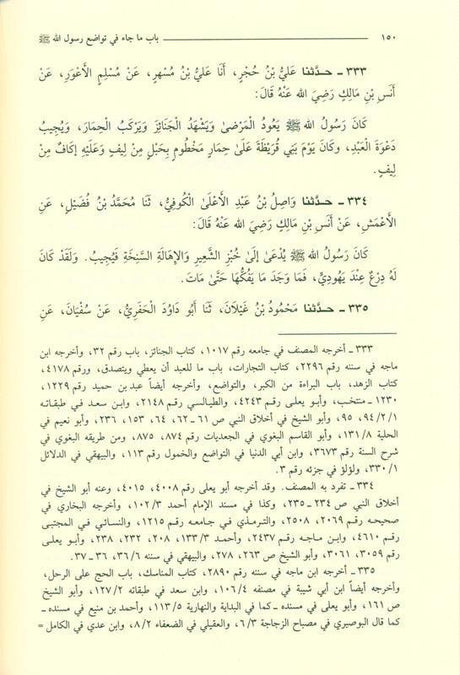 ١٥٠ ــــــــــ باب ما جاء في تواضع رسول الله ﷺ
٣٣٣ ـ حدّثنا عَليُّ بْنُ حُجْرٍ، أَنَا عَليُّ بْنُ مُسْهِرٍ، عَنْ مُسْلِمٍ الأَعْوَرِ، عَنْ
أَنَسِ بْنِ مَالِكٍ رَضِيَ الله عَنْهُ قَالَ:
كَانَ رَسُولُ الله ﷺ يَعُودُ الْمَرْضىٰ وَيَشْهَدُ الْجَنَائِزَ وَيَرْكَبُ الْحِمَارَ، وَيُجِيبُ
دَعْوَةَ الْعَبْدِ، وكَانَ يَوْمَ بَنِي قُرَيْظَةَ عَلَىٰ حِمَارٍ مَخْطُومٍ بِحَبْلٍ مِنْ لِيفٍ وَعَلَيْهِ إكَافٌ مِنْ
لِيفٍ.
٣٣٤ ـ حدّثنا وَاصِلُ بْنُ عَبْدِ الأَعْلَىٰ الْكُوفِيُّ، ثَنَا مُحَمَّدُ بْنُ فُضَيْلٍ، عَنِ
الأَعْمَشِ، عَنْ أَنَسِ بْنِ مَالِكٍ رَضِيَ الله عَنْهُ قَالَ:
كَانَ رَسُولُ الله ﷺ يُدْعَىٰ إلىٰ خُبْزِ الشَّعِيرِ وَالإهَالَةِ السَّنِخَةِ فَيُجِيبُ. وَلَقَدْ كَانَ
لَهُ دِرْعٌ عِنْدَ يَهُودِيٍّ، فَمَا وَجَدَ مَا يَفُكُّهَا حَتَّىٰ مَاتَ.
٣٣٥ ـ حدّثنا مَحْمُودُ بْنُ غَيْلَانَ، ثَنَا أَبُو دَاوُدَ الْحَفَرِيُّ، عَنْ سُفْيَانَ، عَنِ
٣٣٣ ـ أخرجه المصنف في جامعه رقم ١٠١٧، كتاب الجنائز، باب رقم ٣٢، وأخرجه ابن
ماجه في سننه رقم ٢٢٩٦، كتاب التجارات، باب ما للعبد أن يعطي ويتصدق، ورقم ٤١٧٨،
كتاب الزهد، باب البراءة من الكبر، والتواضع، وأخرجه أيضاً عبد بن حميد رقم ١٢٢٩،
١٢٣٠ ـ منتخب، وأبو يعلى رقم ٤٢٤٣، والطيالسي رقم ٢١٤٨، وابن سعد في طبقاته
٩٤/٢/١، ٩٥، وأبو الشيخ في أخلاق النبي ص ٦١ ـ ٦٢، ٦٤، ١٥٣، ٢٣٦، وأبو نعيم في
الحلية ١٣١/٨، وأبو القاسم البغوي في الجعديات رقم ٨٧٤، ٨٧٥، ومن طريقه البغوي في
شرح السنة رقم ٣٦٧٣، وابن أبي الدنيا في التواضع والخمول رقم ١١٣، والبيهقي في الدلائل
٣٣٠/١، ولؤلؤ في جزئه رقم ٣.
٣٣٤ ـ تفرد به المصنف. وقد أخرجه أبو يعلى رقم ٤٠٠٨، ٤٠١٥، وعنه أبو الشيخ في
أخلاق النبي ص ٢٣٤ ـ ٢٣٥، وكذا في مسند الإمام أحمد ١٠٢/٣، وأخرجه البخاري في
صحيحه رقم ٢٠٦٩، ٢٥٠٨، والترمذي في جامعه رقم ١٢١٥، والنسائي في المجتبى
رقم ٤٦١٠، وابن ماجه رقم ٢٤٣٧، وأحمد ١٣٣/٣، ٢٠٨، ٢٣٢، ٢٣٨، وأبو يعلى
رقم ٣٠٥٩، ٣٠٦١، وأبو الشيخ ص ٢٦٣، ٢٧٨، والبيهقي في سننه ٣٦/٦، ٣٦ ـ ٣٧.
٣٣٥ ـ أخرجه ابن ماجه في سننه رقم ٢٨٩٠، كتاب المناسك، باب الحج على الرحل،
وأخرجه أيضاً ابن أبي شيبة في مصنفه ١٠٦/٤، وابن سعد في طبقاته ١٢٧/٢، وأبو الشيخ
ص ١٦١، وأبو يعلى في مسنده ـ كما في البداية والنهارية ١١٣/٥، وأحمد بن منيع في مسنده ـ
كما قال البوصيري في مصباح الزجاجة ٦/٣، والعقيلي في الضعفاء ٨/٢، وابن عدي في الكامل =